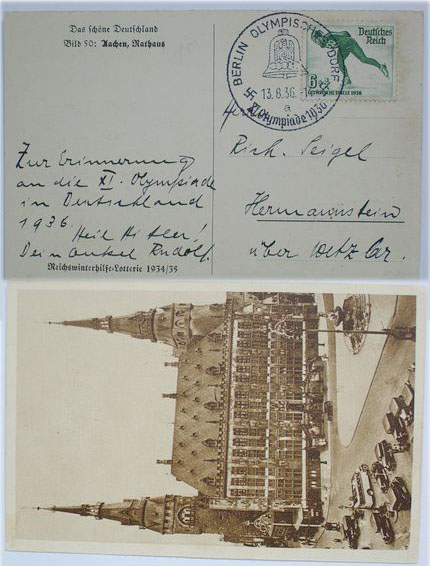 Das schöne Deutschland
Bild 50: Aachen, Rathaus
BERLIN OLYMPISCHES DORF
13.8.36.-1
a
XI. Olympiade 1936
Deutsches
Reich
6
OLYMPISCHE SPIELE 1936
Zur Erinnerung
an die XI. Olympiade
in Deutschland
1936.
Heil Hitler!
Dein Onkel Rudolf.
Rich. Seigel
Hermannstein
über Wetzlar.
Reichswinterhilfe-Lotterie 1934/35